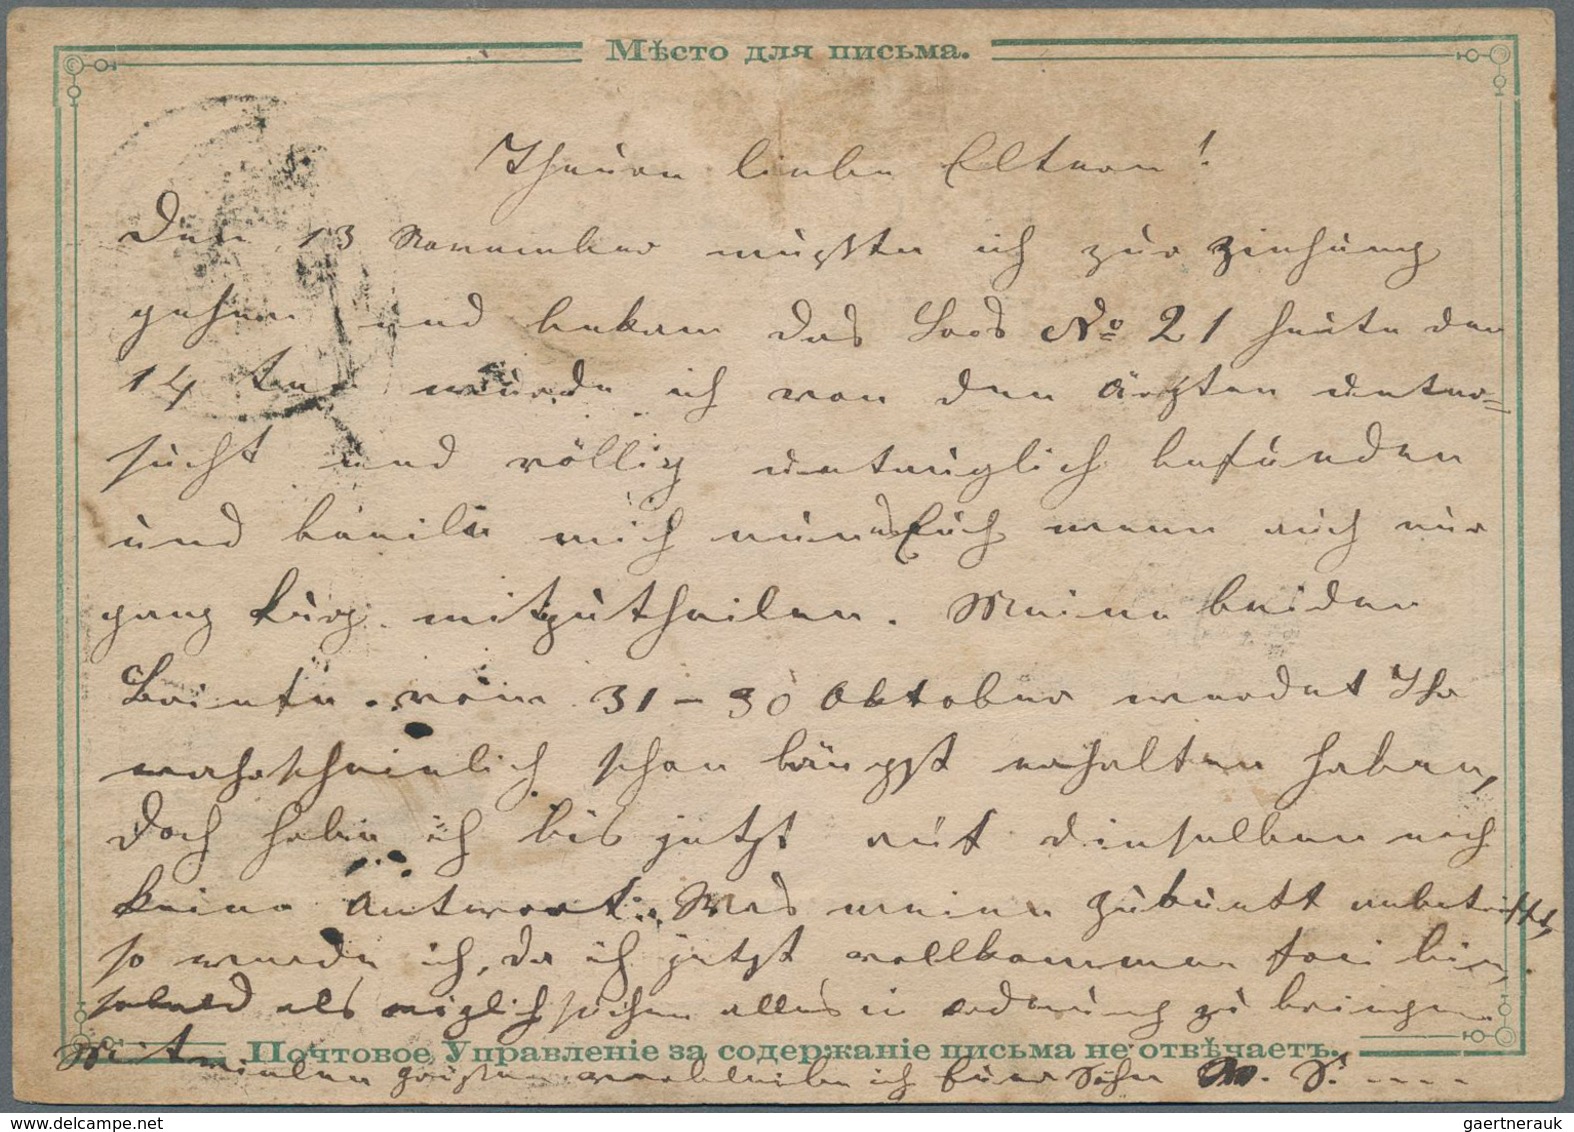 Мѣсто для письма.
Theure liebe Eltern!
Den 13 November mußte ich zur Ziehung
gehen und bekam das Loos No 21 heute den
14 ten wurde ich von den Ärzten unter=
sucht und völlig untauglich befunden
und beeile mich nun es Euch wenn auch nur
ganz kurz mitzutheilen. Meine beiden
Briefe vom 31 – 30 Oktober werdet Ihr
wahrscheinlich schon längst erhalten haben,
doch habe ich bis jetzt auf dieselben noch
keine Antwort. Was meine Zukunft anbetrifft,
so werde ich, da ich jetzt vollkommen frei bin,
sobald als möglich suchen alles in Ordnung zu bringen
Почтовое Управленіе за содержаніе письма не отвѣчаетъ.
Mit vielen Grüßen verbleibe ich Euer Sohn M. S. ----
gaertnerauk